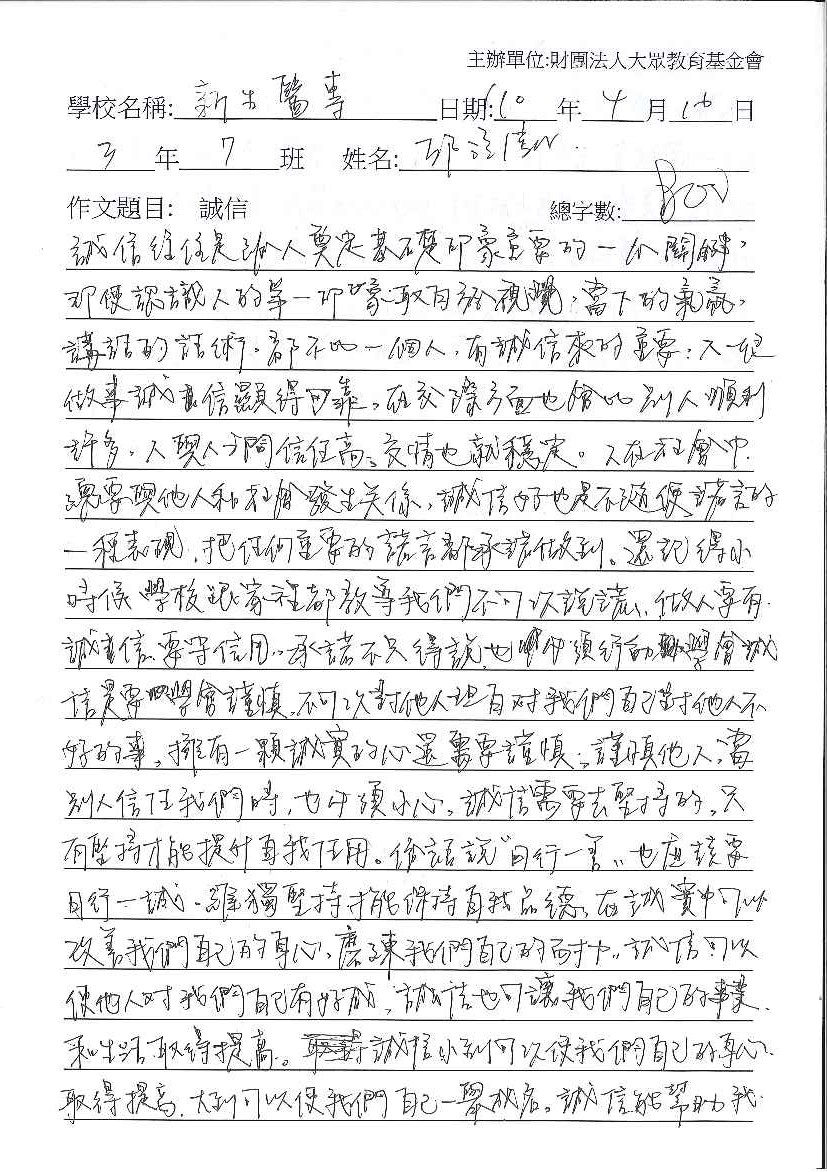 主辦單位:財團法人大眾教育基金會
學校名稱: 新生醫專 日期: 110 年 4 月 16 日
3 年 7 班 姓名: 邱
作文題目: 誠信 總字數: 800
誠信往往是 人奠定基礎印象重要的一 關鍵,
即便認識人的第一印象取自於視覺,當下的氣氛,
講話的話術,都不比一個人,有誠信來的重要;人一旦
做事誠信顯得可靠,在交際方面也會比別人順利
許多,人與人之間信任高、交情也就穩定。人在社會中
總要與他人和社會發生關係,誠信好也是不隨便諾言的
一種表現,把任何重要的諾言都承諾做到。還記得小
時候學校跟家裡都教導我們不可以說謊、做人要有
誠信、要守信用,承諾不只得說,也必須行動 學會誠
信是要學會謹慎,不可以對他人 對我們自己 對他人不
好的事,擁有一顆誠實的心還需要謹慎;謹慎他人,當
別人信任我們時,也必須小心,誠信需要去堅持的,只
有堅持才能提升自我 用。俗語說"日行一善",也應該要
日行一誠, 獨堅持才能保持自我品德,在誠實中可以
改善我們自己的身心,磨練我們自己的耐力,誠信可以
使他人對我們自己有好感,誠信也可讓我們自己的事業
和生活取得提高。誠信小到可以使我們自己的身心
取得提高,大到可以使我們自己一舉成名。誠信能幫助我